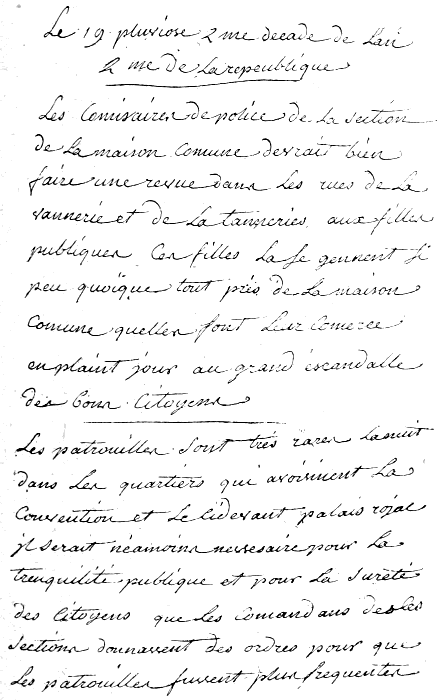 Le 19 pluviose 2 me decade de L'an
2 me de La repeublique
Les Comissaires de police de La section
de La maison Comune devrait bien
faire une revue dans Les rues de La
vannerie et de La tanneries, aux filles
publiques. Ces filles La se gennent si
peu quoïque tout près de La maison
Comune quelles font Leur Comerce
en plaint jour au grand éscandalle
des bons Citoyens
Les patrouilles sont très rares La nuit
dans Les quartiers qui avoisinent La
Convention et Le Cidevant palais rojal
jl serait néamoins nessesaire pour La
trenquilité publique et pour La sureté
des Citoyens que Les Comandans des
sections donnassent des ordres pour que
Les patrouilles fussent plus frequentes